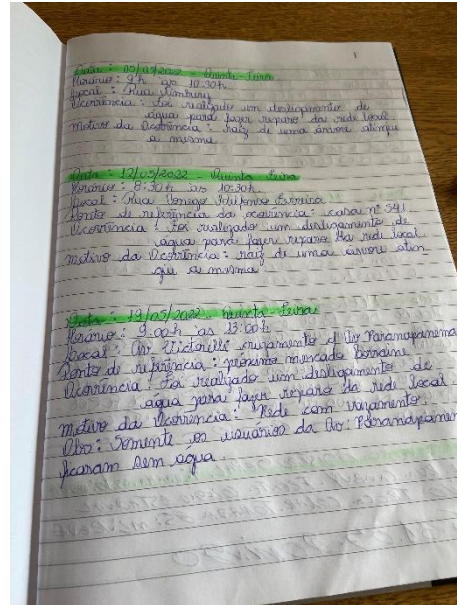 1
Data: 05/05/2022 - Quinta-Feira
Horário: 9h às 10:30h
Local: Rua
Ocorrência: Foi realizado um desligamento de
água para fazer reparo da rede local.
Motivo da Ocorrência: raiz de uma árvore atingiu
a mesma
Data: 12/05/2022 - Quinta Feira
Horário: 8:30h às 10:30h.
Local: Rua Conego Ferreira
Ponto de referência da ocorrência: casa nº 541
Ocorrência: Foi realizado um desligamento de
água para fazer reparo da rede local
Motivo da Ocorrência: raiz de uma árvore atin
giu a mesma
Data: 19/05/2022 - Quinta-Feira
Horário: 9:00h às 13:00h
Local: Av. cruzamento d Av Paranapanema
Ponto de referência: próximo mercado
Ocorrência: Foi realizado um desligamento de
água para fazer reparo da rede local
Motivo da Ocorrência: Rede com vazamento.
Obs: Somente os usuários da Av: Paranapanem
ficaram sem água